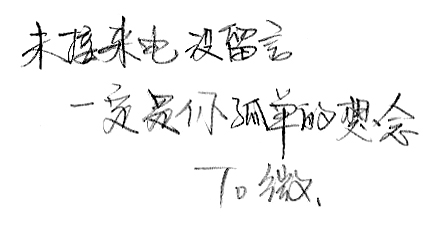 未接来电没留言
一定是你孤单的想念
To 微.